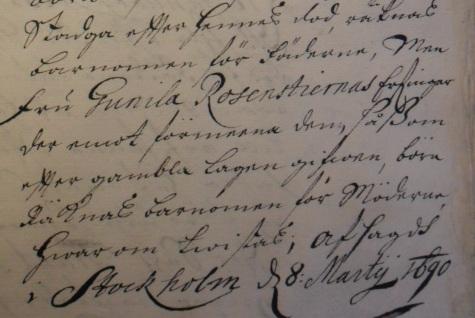 Stadga effter hennes död, räknas
barnomen för Fäderne, Men
Fru Gunila Rosenstiernas Erfingar
der emot förmeena dem, såssom
effter gambla lagen gifwen, böra
Räknas barnomen för Möderne,
hwar om twistas; Afsagdt
i Stockholm d 8: Martij 1690